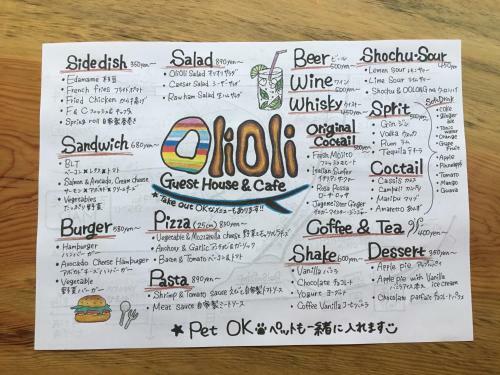 Sidedish 350yen~
• Edamame 枝豆
• French fries フライドポテト
• Fried Chicken からあげ
• F & C フィッシュ&チップス
• Spring roll 自家製春巻き
Salad 890yen~
• OliOli Salad オリオリサラダ
• Caesar Salad シーザーサラダ
• Rawham Salad 生ハムサラダ
Beer ビール 500yen~
Wine ワイン 500yen~
Whisky ウイスキー 450yen~
Shochu-Sour 450yen
• Lemon Sour レモンサワー
• Lime Sour ライムサワー
• Shochu & OOLONG tea ウーロンハイ
Sandwich 680yen~
• BLT
ベーコン×レタス×トマト
• Salmon & Avocado, Cream cheese
サーモン×アボカド×クリームチーズ
• Vegetables
たっぷり野菜
OliOli
Guest House & Cafe
★ Take out OKなメニューもあります!!
Original Coctail
• Fresh Mojito
フレッシュモヒート
• Italian Surfer
イタリアンサーファー
• Rosa Rossa
ローザロッサ
• Jagermeister Ginger
Sprit
• Gin ジン
• Vodka ウォッカ
• Rum ラム
• Tequila テキーラ
Soft Drink
• Coke
• Ginger ale
• Tonic water
• Orange
• Grape Fruit
• Apple
• Pineapple
• Tomato
• Mango
• Guava
Coctail
• Cassis カシス
• Campari カンパリ
• Maribu マリブ
• Amaretto
Burger 580yen~
• Hamburger
ハンバーガー
• Avocado Cheese Hamburger
アボカドチーズハンバーガー
• Vegetable
野菜バーガー
Pizza (25cm) 890yen~
• Vegetable & Mozzarella cheese
• Anchovy & Garlic アンチョビ&ガーリック
• Bacon & Tomato ベーコン&トマト
Coffee & Tea 400yen~
Pasta 890yen~
• Shrimp & Tomato sauce えびと自家製トマトソース
• Meat sauce 自家製ミートソース
Shake 600yen~
• Vanilla バニラ
• Chocolate チョコレート
• Yogurt ヨーグルト
• Coffee Vanilla コーヒーバニラ
Dessert 350yen~
• Apple pie アップルパイ
• Apple pie with Vanilla ice cream
• Chocolate parfait チョコレートパフェ
★ Pet OK ペットも一緒に入れます